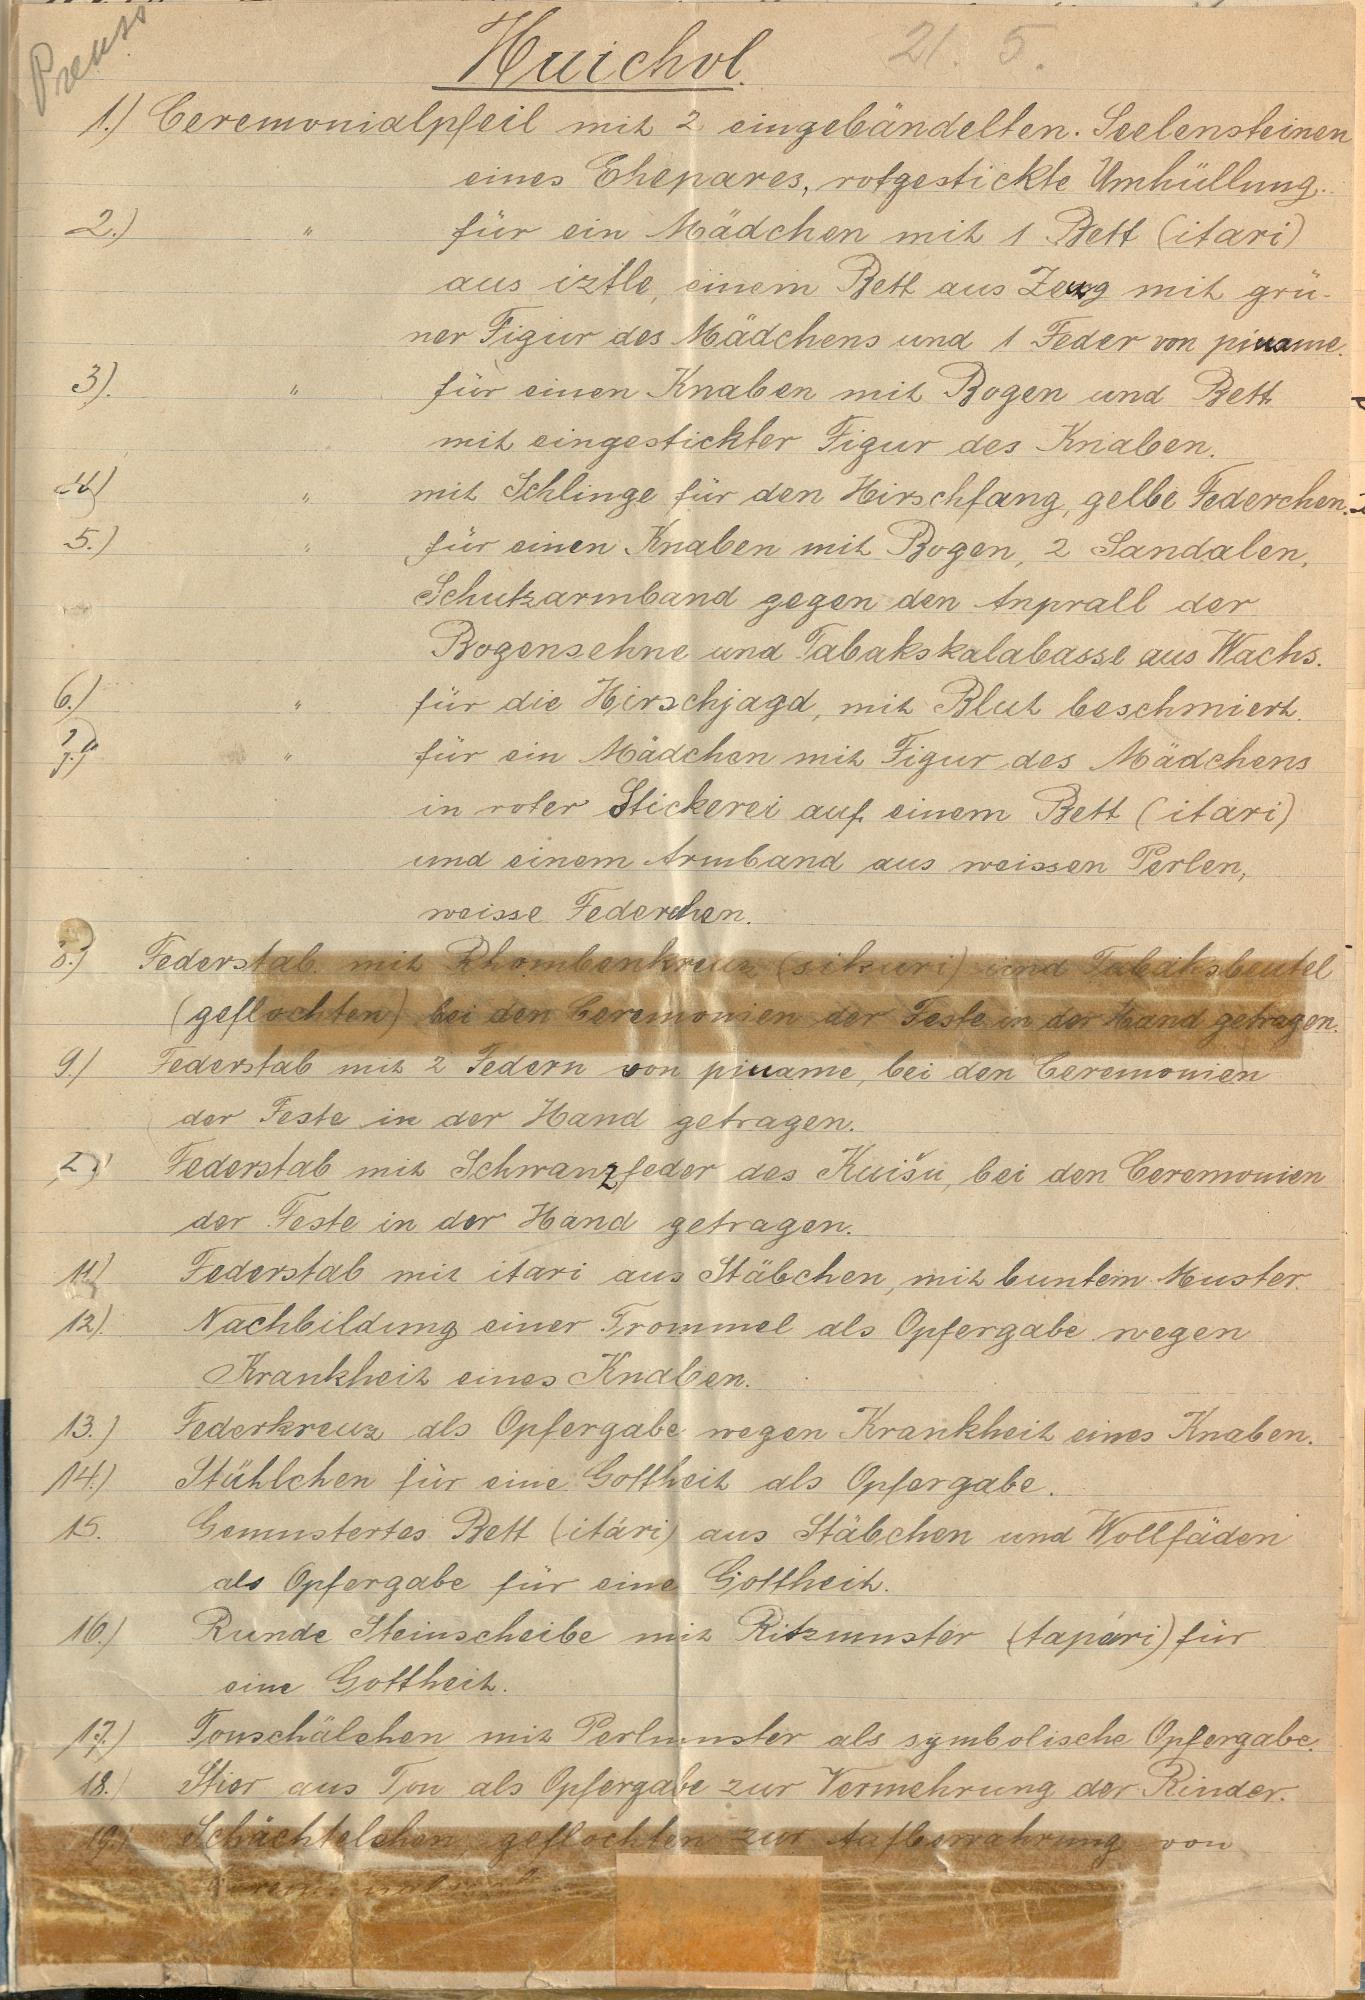 Preuss
Huichol.
21. 5.
1.) Ceremonialpfeil mit 2 eingebändelten Seelensteinen
eines Ehepares, rotgestickte Umhüllung.
2.) " für ein Mädchen mit 1 Bett (itari)
aus iztle, einem Bett aus Zeug mit grü-
ner Figur des Mädchens und 1 Feder von piwame.
3). " für einen Knaben mit Bogen und Bett
mit eingestickter Figur des Knaben.
" mit Schlinge für den Hirschfang, gelbe Federchen.
5.) " für einen Knaben mit Bogen, 2 Sandalen,
Schutzarmband gegen den Anprall der
Bogensehne und Tabakskalabasse aus Wachs.
6.) " für die Hirschjagd, mit Blut beschmiert.
7.) " für ein Mädchen mit Figur des Mädchens
in roter Stickerei auf einem Bett (itari)
und einem Armband aus weissen Perlen,
weisse Federchen.
8.) Federstab mit Rhombenkreuz (sikuri) und Tabaksbeutel
(geflochten) bei den Ceremonien der Feste in der Hand getragen.
9.) Federstab mit 2 Federn von piwame, bei den Ceremonien
der Feste in der Hand getragen.
Federstab mit Schwanzfeder des Kuišu, bei den Ceremonien
der Feste in der Hand getragen.
11.) Federstab mit itari aus Stäbchen, mit buntem Muster.
12). Nachbildung einer Trommel als Opfergabe wegen
Krankheit eines Knaben.
13.) Federkreuz als Opfergabe wegen Krankheit eines Knaben.
14.) Stühlchen für eine Gottheit als Opfergabe.
15. Gemustertes Bett (itári) aus Stäbchen und Wollfäden
als Opfergabe für eine Gottheit.
16.) Runde Steinscheibe mit Ritzmuster (tapári) für
eine Gottheit.
17.) Tonschälchen mit Perlmuster als symbolische Opfergabe.
18.) Stier aus Ton als Opfergabe zur Vermehrung der Rinder.
19.) Schächtelchen geflochten zur Aufbewahrung von